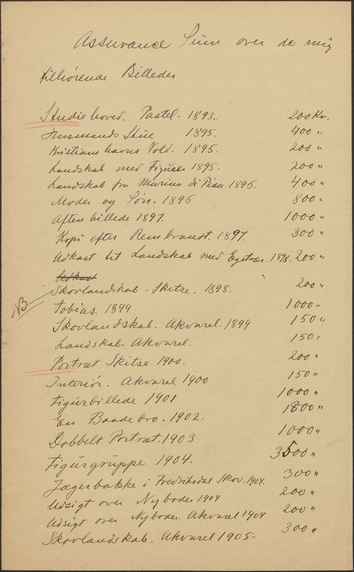 Assurance Sum over de mig
tilhørende Billeder
Studiehoved. Pastel. 1893. 200 Kr.
Husmands Stue 1895. 400 "
Kristianshavns Vold. 1895. 200 "
Landskab med Figurer 1895. 200 "
Landskab fra Marina di Pisa 1895. 400 "
Moder og Søn. 1896 800 "
Aftenbillede 1897. 1000 "
Kopi efter Rembrandt. 1897. 300 "
Udkast til Landskab med 1898. 200 "
Skovlandskab. Skitze. 1898. 200 "
NB
Tobias. 1899 1000 "
Skovlandskab. Akvarel. 1899 150 "
Landskab. Akvarel. 150 "
Portræt Skitze 1900. 200 "
Interiør. Akvarel 1900 150 "
Figurbillede 1901 1000 "
En Baadebro. 1902. 1800 "
Dobbelt Portræt. 1903 1000 "
Figurgruppe 1904. 3500 "
Jægerbakke i Fredriksdal Skov. 1904. 300 "
Udsigt over Nyboder 1904 200 "
Udsigt over Nyboder Akvarel 1904 200 "
Skovlandskab. Akvarel 1905. 300 "